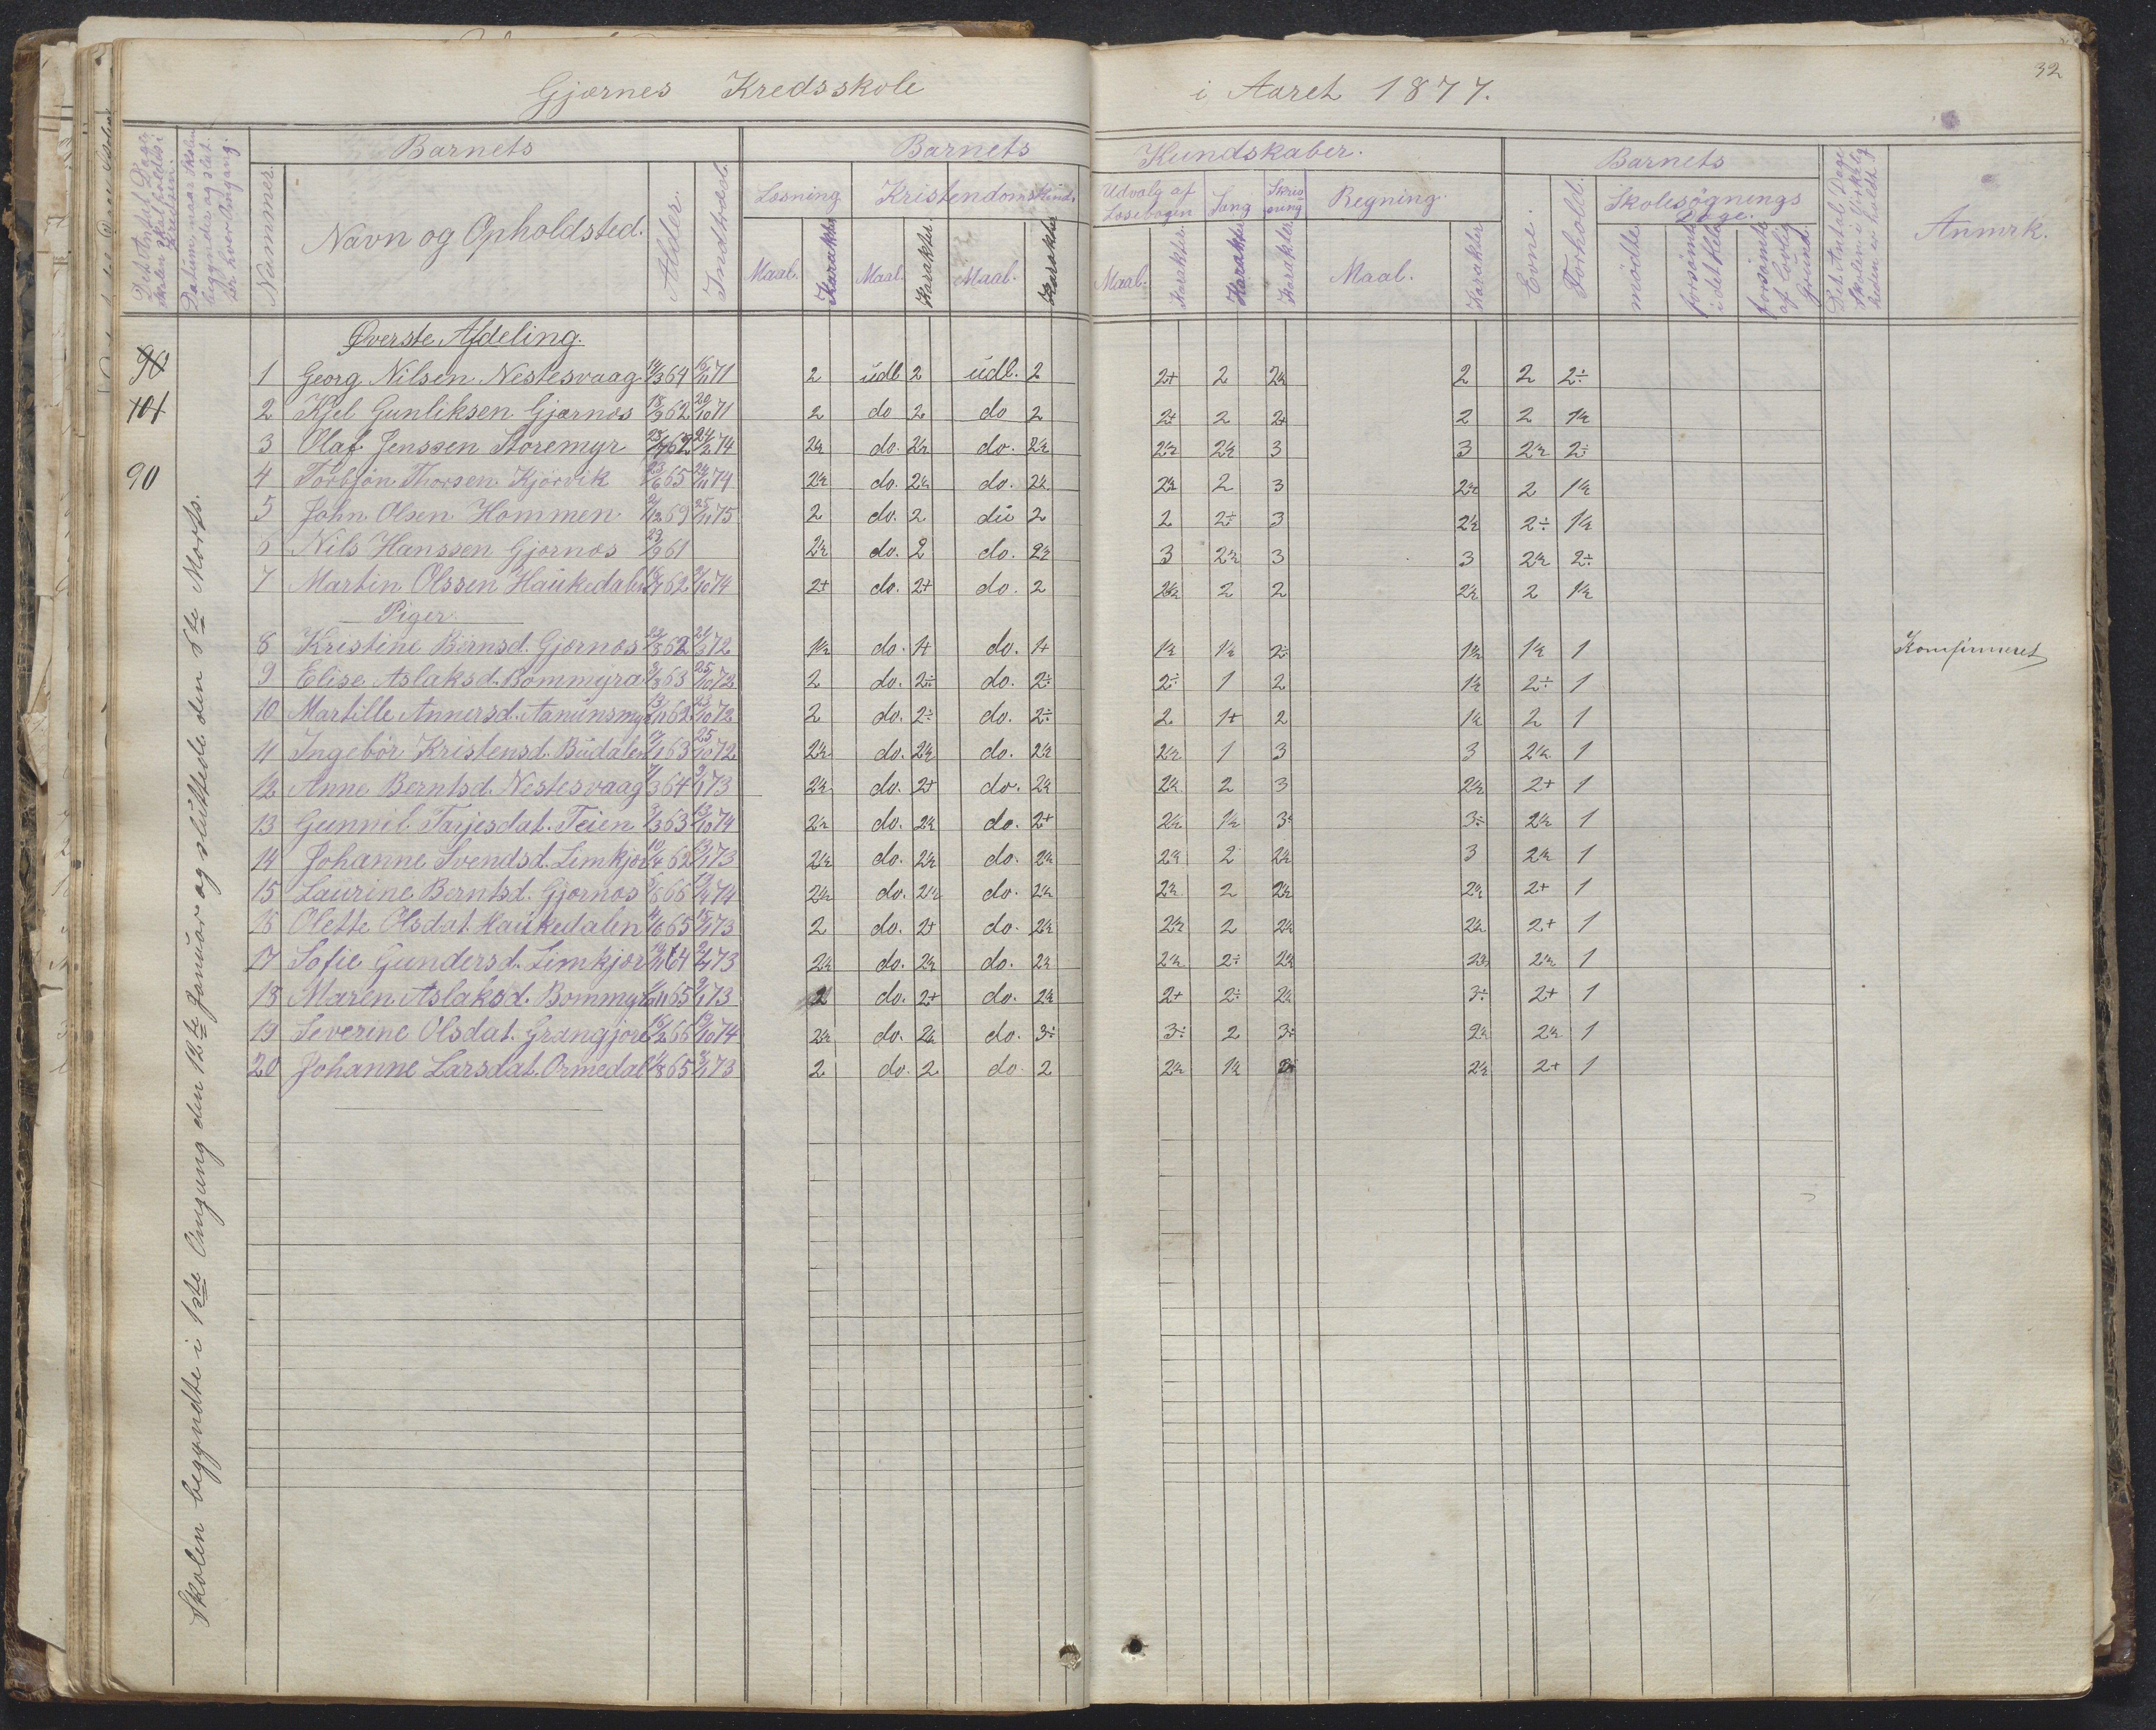 32
Gjærnes Kredsskole i Aaret 1877.
Det Antal Dage Skolen skal holdes i Kredsen.
Datum, naar Skolen begynder og slut. for hver Omgang.
Nummer.
Barnets
Navn og Opholdsted.
Alder.
Indtrædst.
Barnets Kundskaber.
Læsning Kristendomskund. Udvalg af Læsebogen Sang Skrivning Regning.
Maal. Karakter Maal. Karakter Maal. Karakter Maal. Karakter. Karakter Karakter. Maal. Karakter
Barnets
Evne. Forhold. Skolesøgnings Dage.
mødte forsømte i det Hele forsømte af lovlig Grund.
Det Antal Dage Skolen i Virkeligheden er holdt.
Anmrk.
Skolen begyndte i 1ste Omgang den 12te Januar og sluttede den 8te Marts.
Øverste Afdeling.
90
1 Georg Nilsen Nestesvaag 64 71 2 udl 2 udl. 2 2+ 2 2½ 2 2 2÷
101
2 Kjel Gunliksen Gjærnes 18/9 62 20/10 71 2 do 2 do 2 2+ 2 2+ 2 2 1½
3 Olaf Jenssen Storemyr 62 74 2½ do. 2½ do. 2½ 2½ 2½ 3 3 2½ 2÷
90
4 Torbjøn Thorsen Kjørvik 23/6 65 74 2½ do. 2½ do. 2½ 2½ 2 3 2½ 2 1½
5 John Olsen Hommen 69 25/11 75 2 do. 2 du 2 2 2÷ 3 2½ 2÷ 1½
6 Nils Hanssen Gjærnes 23/9 61 2½ do. 2 do. 2½ 3 2½ 3 3 2½ 2÷
7 Martin Olssen Haukedalen 62 74 2+ do. 2+ do. 2 2½ 2 2 2½ 2 1½
Piger
8 Kristine Børnsd. Gjærnes 62 72 1½ do. 1+ do. 1+ 1½ 1½ 2÷ 1½ 1½ 1 Konfirmeret
9 Elise Aslaksd. Bommyra 63 25/10 72 2 do. 2÷ do. 2÷ 2÷ 1 2 1½ 2÷ 1
10 Martille Annersd. Aanunsmyr 13/11 62 23/10 72 2 do. 2÷ do. 2÷ 2 1+ 2 1½ 2 1
11 Ingebór Kristensd. Budalen 63 25/10 72 2½ do. 2½ do. 2½ 2½ 1 3 3 2½ 1
12 Anne Berntsd. Nestesvaag 64 73 2½ do. 2+ do. 2½ 2½ 2 3 2½ 2+ 1
13 Gunvil Tarjesdat. Teien 63 13/10 74 2½ do. 2½ do. 2+ 2½ 1½ 3÷ 3÷ 2½ 1
14 Johanne Svendsd. Limkjær 10/4 62 73 2½ do. 2½ do. 2½ 2½ 2 2½ 3 2½ 1
15 Laurine Berntsd. Gjærnes 66 74 2½ do. 2½ do. 2½ 2½ 2 2½ 2½ 2+ 1
16 Olette Olsdat. Haukedalen 65 73 2 do. 2+ do. 2½ 2½ 2 2½ 2½ 2+ 1
17 Sofie Gundersd. Limkjær 64 73 2½ do. 2½ do. 2½ 2½ 2÷ 2½ 2½ 2½ 1
18 Maren Aslaksd. Bommyra 65 73 2 do. 2+ do. 2½ 2+ 2÷ 2½ 3÷ 2+ 1
19 Severine Olsdat. Grangjøre 66 74 2½ do. 2½ do. 3÷ 3÷ 2 3÷ 2½ 2½ 1
20 Johanne Larsdat. Ormedal 65 73 2 do. 2 do. 2 2½ 1½ 2½ 2+ 1